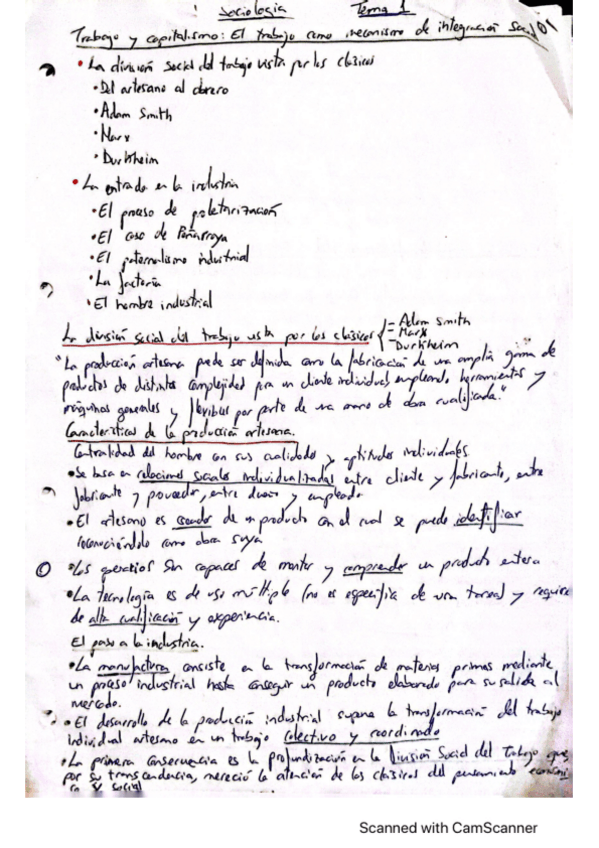 Sociología Tema 1
Trabajo y capitalismo: El trabajo como mecanismo de integración Social 01
• La división social del trabajo vista por los clásicos
• Del artesano al obrero
• Adam Smith
• Marx
• Durkheim
• La entrada en la industria
• El proceso de proletarización
• El caso de Peñarroya
• El paternalismo industrial
• La factoría
• El hombre industrial
La división social del trabajo vista por los clásicos
- Adam Smith
- Marx
- Durkheim
"La producción artesana puede ser definida como la fabricación de una amplia gama de
productos de distinta complejidad para un cliente individual, empleando herramientas y
máquinas generales y flexibles por parte de una mano de obra cualificada."
Características de la producción artesana.
Centralidad del hombre con sus cualidades y aptitudes individuales
• Se basa en relaciones sociales individualizadas entre cliente y fabricante, entre
fabricante y proveedor, entre dueño y empleado
• El artesano es creador de un producto con el cual se puede identificar
reconociéndolo como obra suya
• Los operarios son capaces de montar y comprender un producto entero
• La tecnología es de uso múltiple (no es específica de una tarea) y requiere
de alta cualificación y experiencia.
El paso a la industria.
• La manufactura consiste en la transformación de materias primas mediante
un proceso industrial hasta conseguir un producto elaborado para su salida al
mercado.
• El desarrollo de la producción industrial supone la transformación del trabajo
individual artesano en un trabajo colectivo y coordinado
• La primera consecuencia es la profundización en la División Social del Trabajo que,
por su transcendencia, mereció la atención de los clásicos del pensamiento
social
Scanned with CamScanner